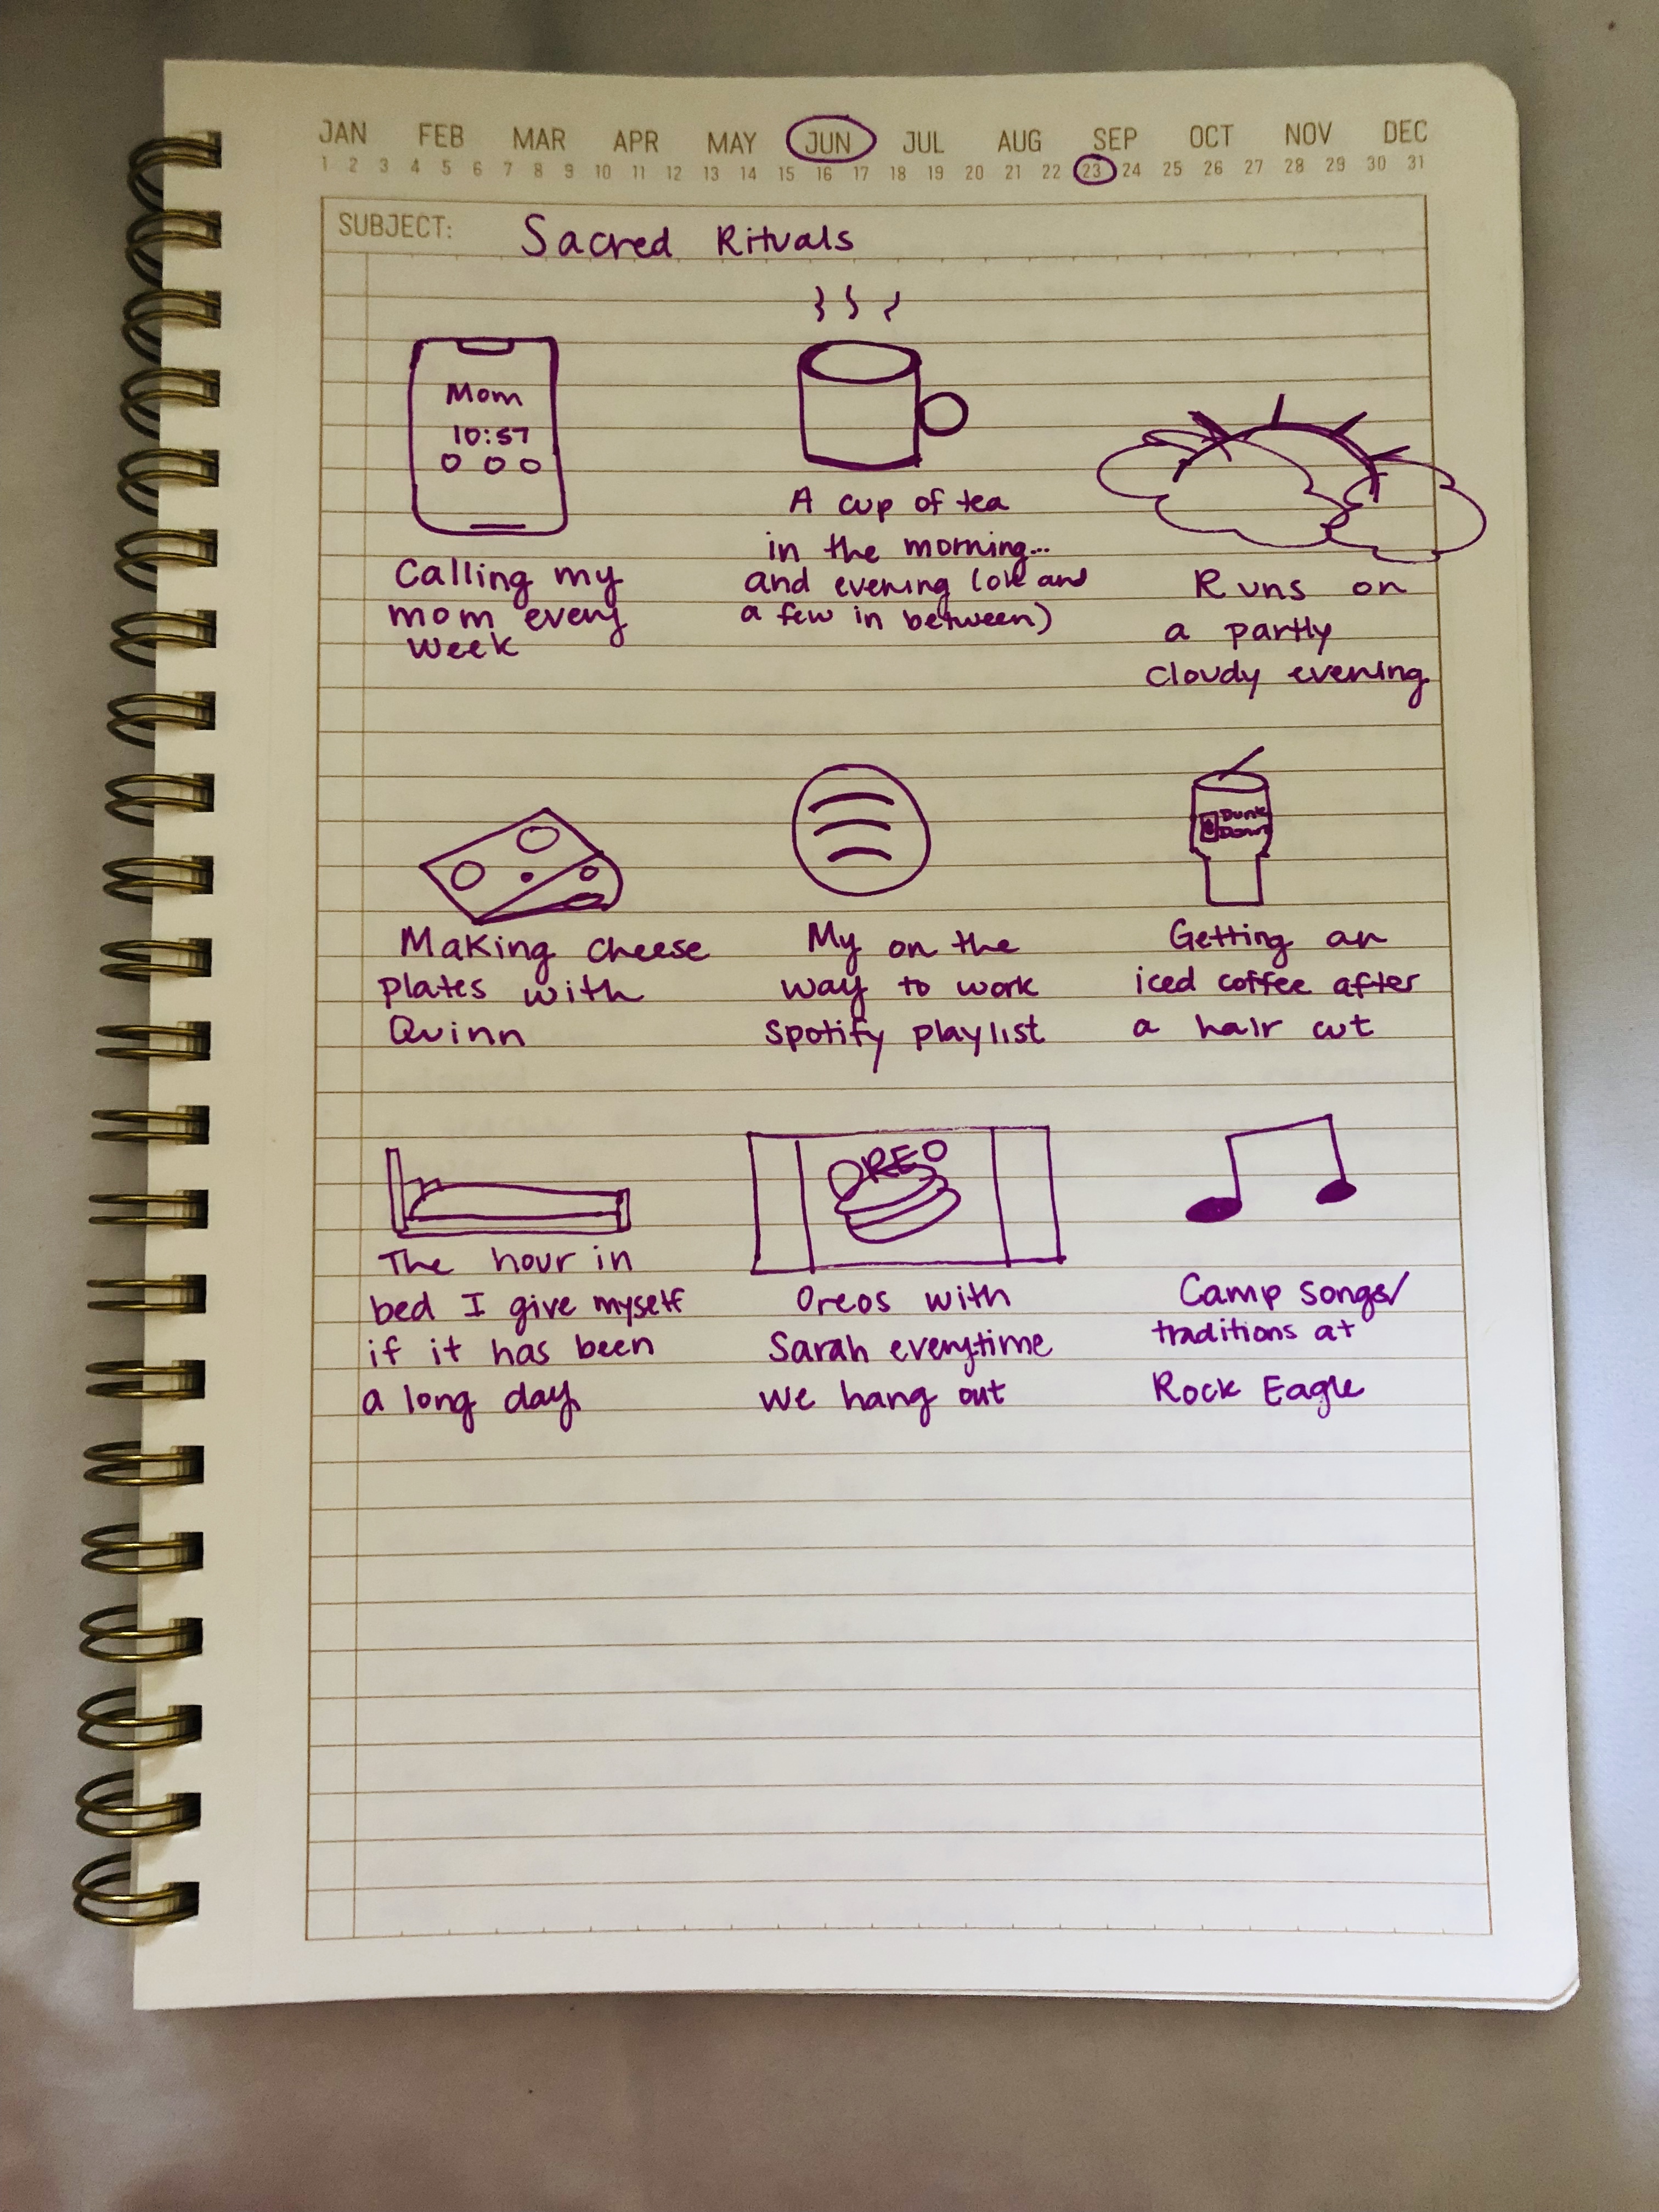 JAN FEB MAR APR MAY JUN JUL AUG SEP OCT NOV DEC
1 2 3 4 5 6 7 8 9 10 11 12 13 14 15 16 17 18 19 20 21 22 23 24 25 26 27 28 29 30 31
SUBJECT: Sacred Rituals
Mom
10:57
Calling my
mom every
week
A cup of tea
in the morning...
and evening (ok and
a few in between)
Runs on
a partly
cloudy evening
Making cheese
plates with
Quinn
My on the
way to work
Spotify playlist
Dunk
Donn
Getting an
iced coffee after
a hair cut
The hour in
bed I give myself
if it has been
a long day
OREO
Oreos with
Sarah everytime
we hang out
Camp songs/
traditions at
Rock Eagle